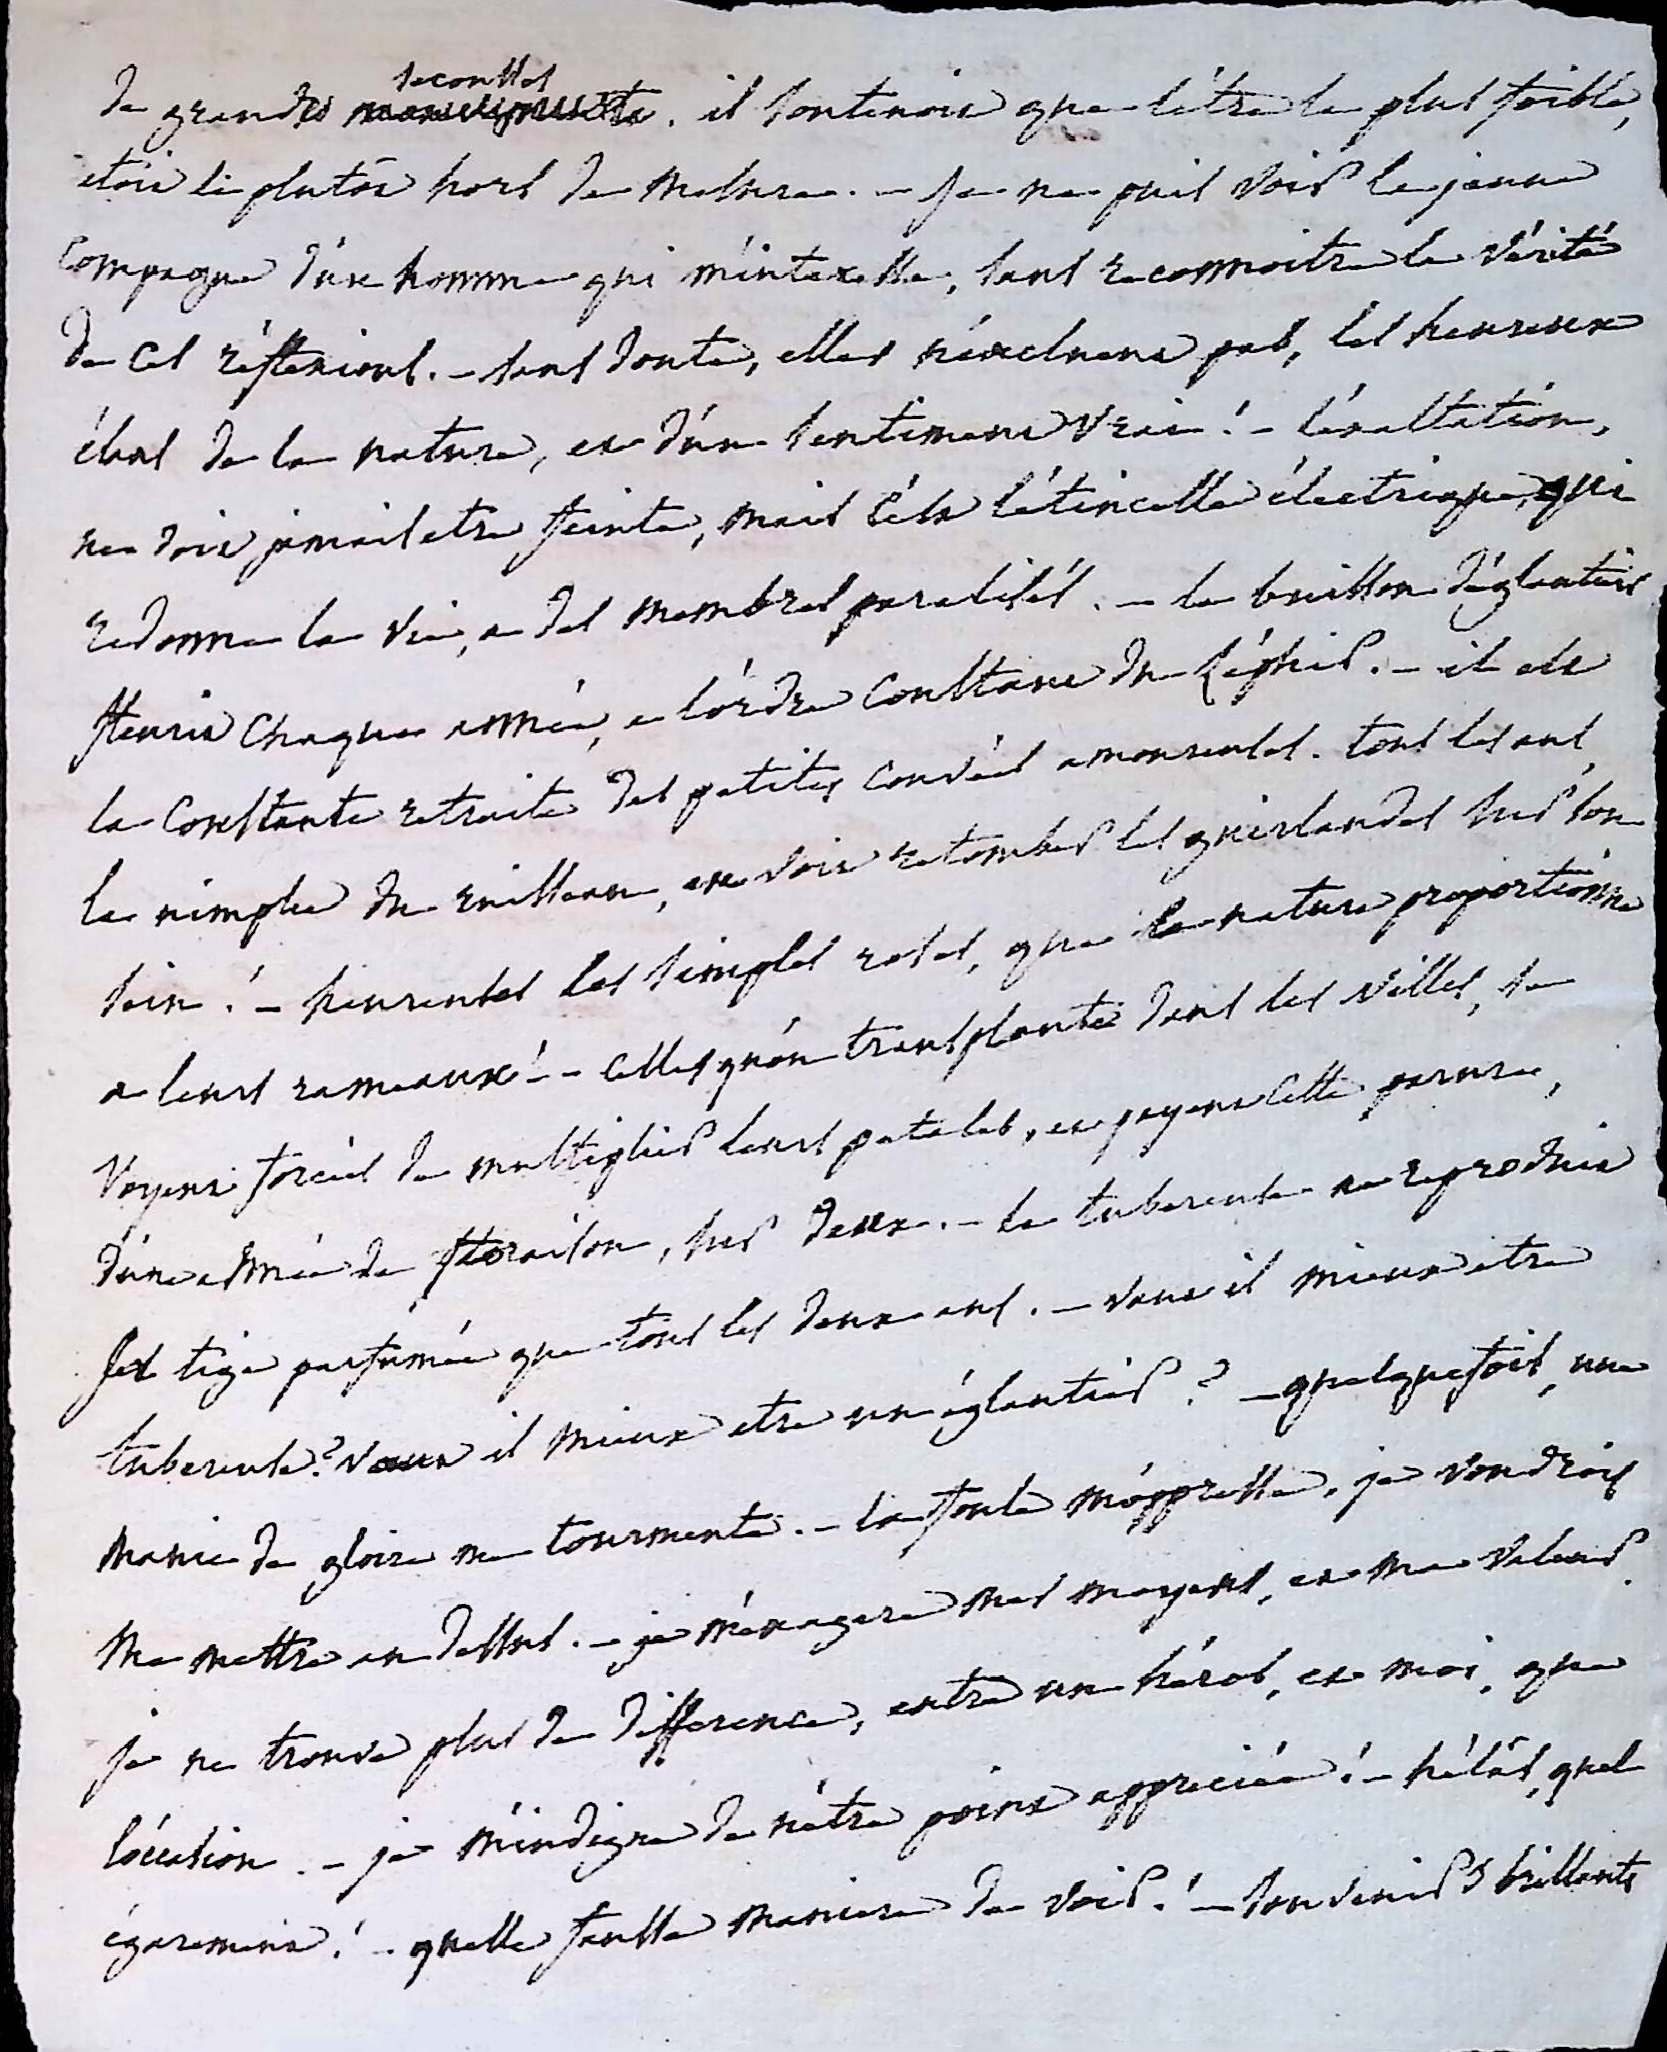 secousses
de grandes il soutenoit que l'être le plus foible,
etoit le plutôt hors de mesure. – je ne puis voir la jeune
compagne d'un homme qui m'interesse, sans reconnoitre la vérité
de ces réflexions. – sans doute, elles n'excluent pas, les heureux
élans de la nature, et d'un sentiment vrai ! – l'exaltation,
ne doit jamais etre feinte, mais c'est l'étincelle électrique, qui
redonne la vie, a des membres paralisés. – le buisson d'églantier
fleurit chaque année, a l'ordre constant du zéphir. – il est
la constante retraite des petites couvées amoureuses. tous les ans,
la nimphe du ruisseau, en voit retomber les guirlandes sur son
sein ! – heureuses les simples roses, que la nature proportionne
a leurs rameaux ! – celles qu'on transplante dans les villes, se
voyent forcées de multiplier leurs petales, et payent cette parure,
d'une année de floraison, sur deux. – la tubereuse ne reproduit
sa tige parfumée que tous les deux ans. – vaut il mieux etre
tubereuse ? vaut il mieux etre un églantier ? – quelquefois, une
manie de gloire me tourmente. – la foule m'oppresse, je voudrois
me mettre au dessus. – je m'exagere mes moyens, et ma valeur.
je ne trouve plus de difference, entre un héros, et moi, que
l'occasion. – je m'indigne de n'être point appreciée ! – hélas, quel
égarement ! – quelle fausse maniere de voir ! – souvenirs brillants